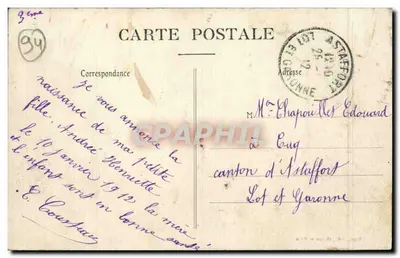 2ème
94
CARTE POSTALE
Correspondance
Adresse
ASTAFFORT
12 *
25 -
12
LOT ET GARONNE
Je vous annonce la
naissance de ma petite
fille. Andrée Henriette
le 10 janvier 1912 la mère
et l'enfant sont en bonne santé
E.
M
Edouard
canton d'Astaffort
Lot et Garonne